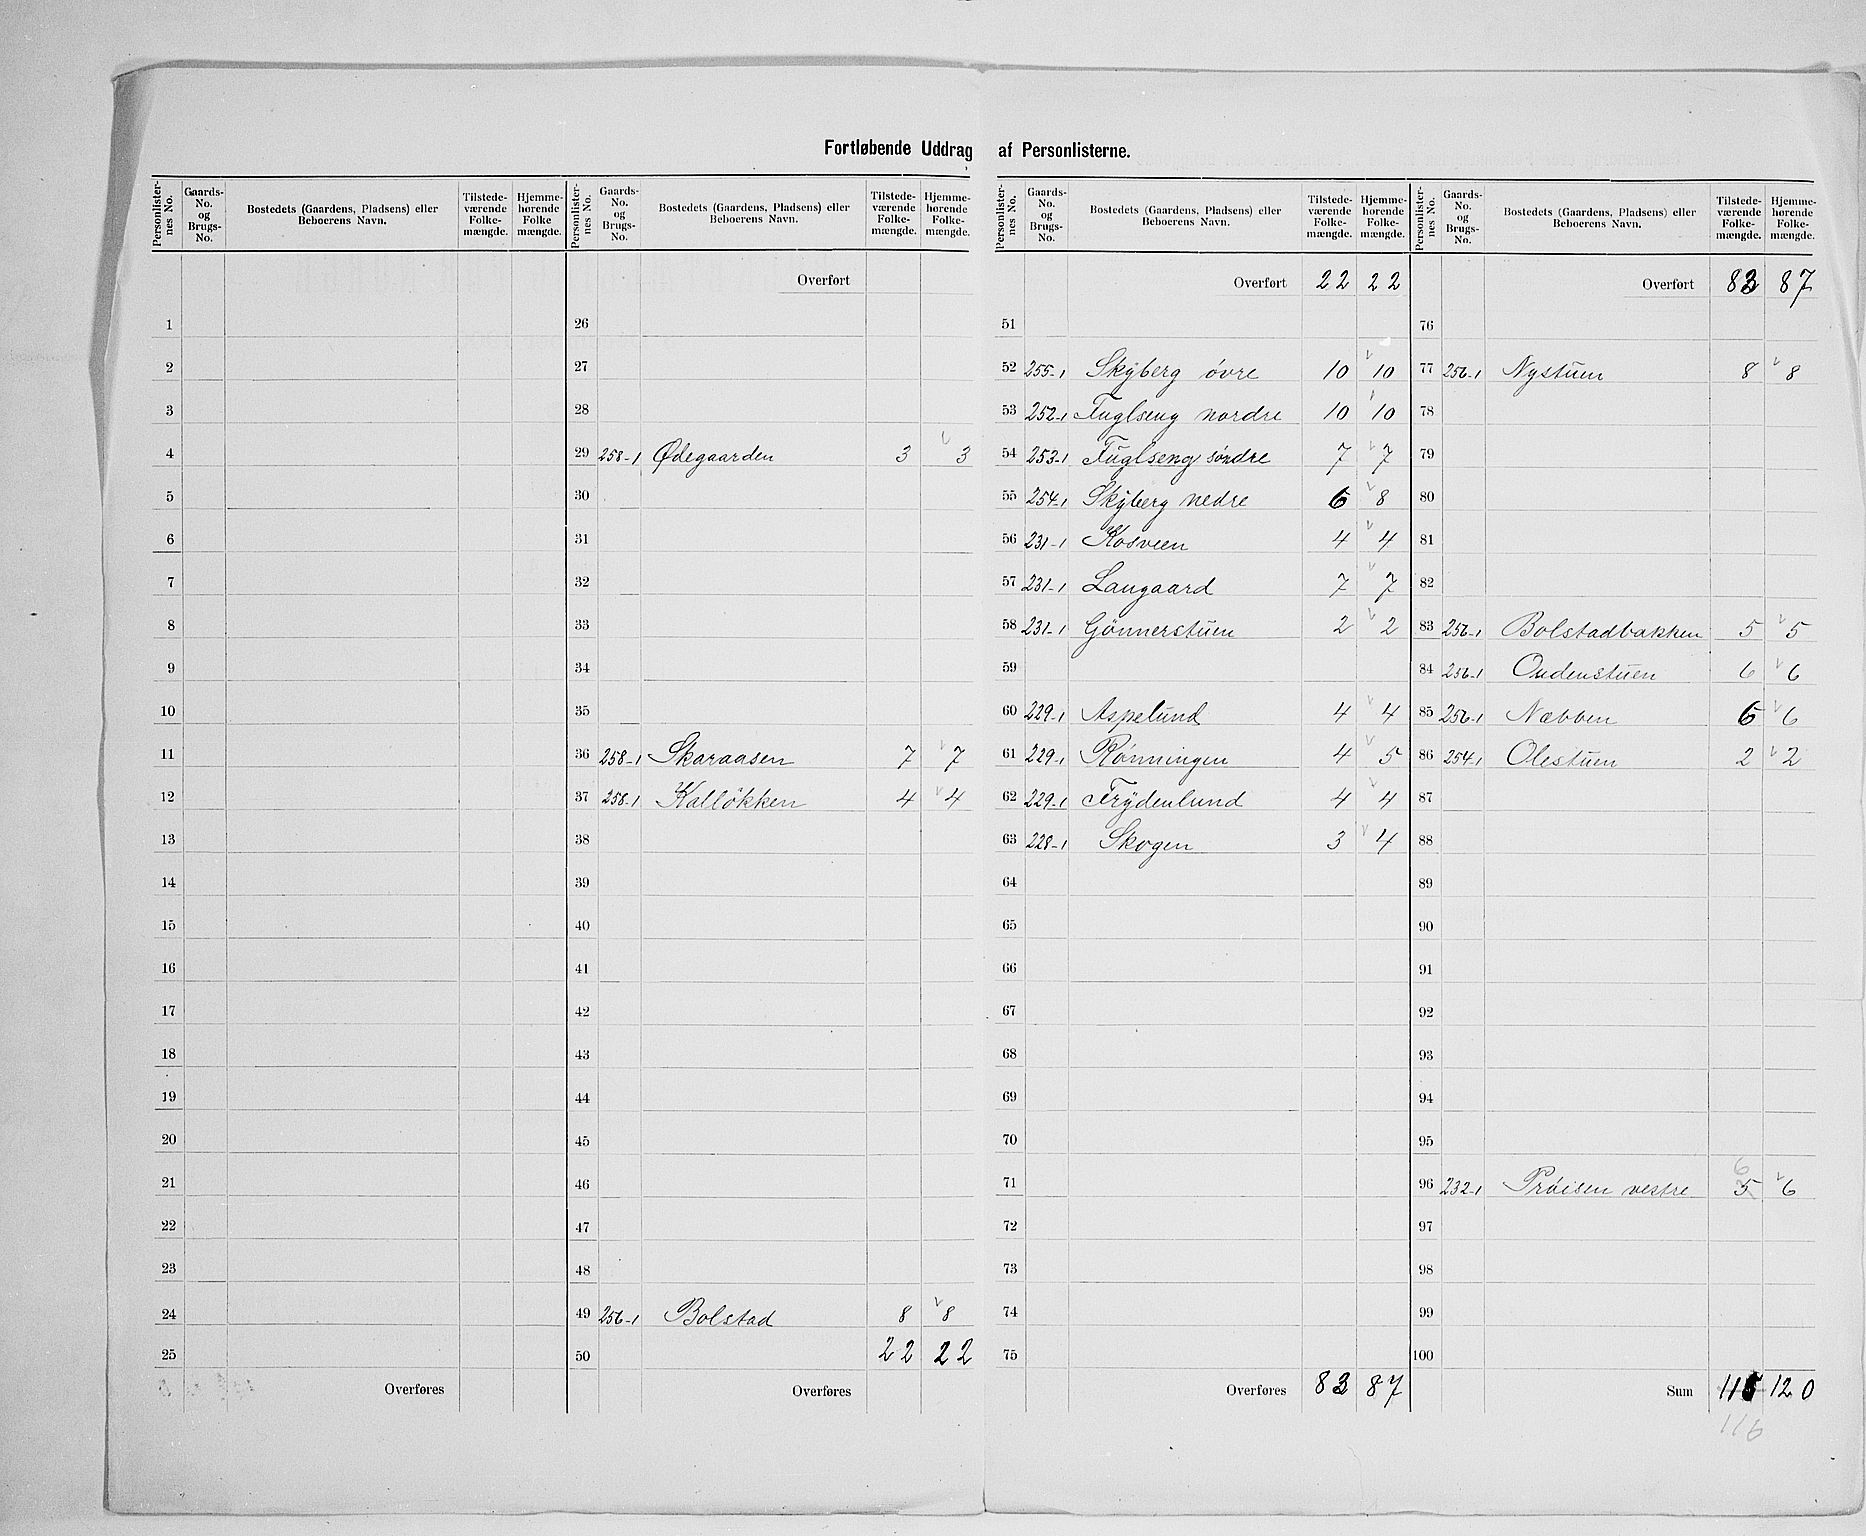 Fortløbende Uddrag af Personlisterne.
Personlister- nes No. | Gaards- No. og Brugs- No. | Bostedets (Gaardens, Pladsens) eller Beboerens Navn. | Tilstede- værende Folke- mængde. | Hjemme- hørende Folke mængde.
1
2
3
4
5
6
7
8
9
10
11
12
13
14
15
16
17
18
19
20
21
22
23
24
25
Overføres
Personlister- nes No. | Gaards- No. og Brugs- No. | Bostedets (Gaardens, Pladsens) eller Beboerens Navn. | Tilstede- værende Folke- mængde. | Hjemme- hørende Folke- mængde.
Overført
26
27
28
29 258-1 Ødegaarden 3 v 3
30
31
32
33
34
35
36 258-1 Skaraasen 7 v 7
37 258-1 Kalløkken 4 v 4
38
39
40
41
42
43
44
45
46
47
48
49 256-1 Bolstad 8 v 8
50 22 22
Overføres
Personlister- nes No. | Gaards- No. og Brugs- No. | Bostedets (Gaardens, Pladsens) eller Beboerens Navn. | Tilstede- værende Folke- mængde. | Hjemme- hørende Folke- mængde.
Overført 22 22
51
52 255-1 Skyberg øvre 10 v 10
53 252-1 Fuglseng nordre 10 v 10
54 253-1 Fuglseng søndre 7 v 7
55 254-1 Skyberg nedre 6 v 8
56 231-1 Kosveen 4 v 4
57 231-1 Laugaard 7 v 7
58 231-1 Gønnerstuen 2 v 2
59
60 229-1 Aspelund 4 v 4
61 229-1 Rønningen 4 v 5
62 229-1 Frydenlund 4 v 4
63 228-1 Skogen 3 v 4
64
65
66
67
68
69
70
71
72
73
74
75
Overføres 83 87
Personlister- nes No. | Gaards- No. og Brugs- No. | Bostedets (Gaardens, Pladsens) eller Beboerens Navn. | Tilstede- værende Folke- mængde. | Hjemme- hørende Folke- mængde.
Overført 83 87
76
77 256-1 Nystuen 8 v 8
78
79
80
81
82
83 256-1 Bolstadbakken 5 v 5
84 256-1 Oudenstuen 6 v 6
85 256-1 Næbben 6 v 6
86 254-1 Olestuen 2 v 2
87
88
89
90
91
92
93
94
95
6
96 232-1 Prøisen vestre 5 v 6
97
98
99
100
Sum 115 120
116